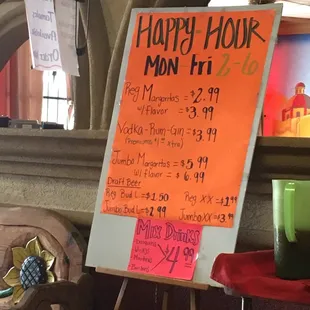 HAPPY-HOUR
MON-Fri 2-6
Reg Margaritas = $2.99
w/ flavor = $3.99
Vodka-Rum-Gin = $3.99
Jumbo Margaritas = $5.99
w/ flavor = $6.99
Draft Beer
Reg. Bud L = $1.50 Reg XX = $1.99
Jumbo Bud L = $2.99 Jumbo XX = $3.99
Mix Drinks
$4.99